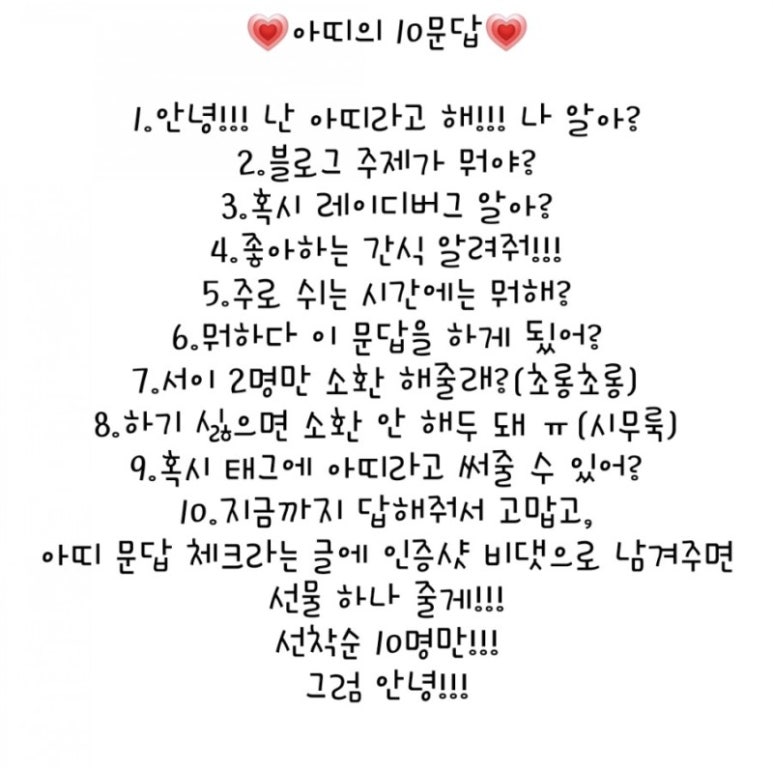 💗아띠의 10문답💗
1.안녕!!! 난 아띠라고 해!!! 나 알아?
2.블로그 주제가 뭐야?
3.혹시 레이디버그 알아?
4.좋아하는 간식 알려줘!!!
5.주로 쉬는 시간에는 뭐해?
6.뭐하다 이 문답을 하게 됬어?
7.서이 2명만 소환 해줄래?(초롱초롱)
8.하기 싫으면 소환 안 해두 돼 ㅠ(시무룩)
9.혹시 태그에 아띠라고 써줄 수 있어?
10.지금까지 답해줘서 고맙고,
아띠 문답 체크라는 글에 인증샷 비댓으로 남겨주면
선물 하나 줄게!!!
선착순 10명만!!!
그럼 안녕!!!